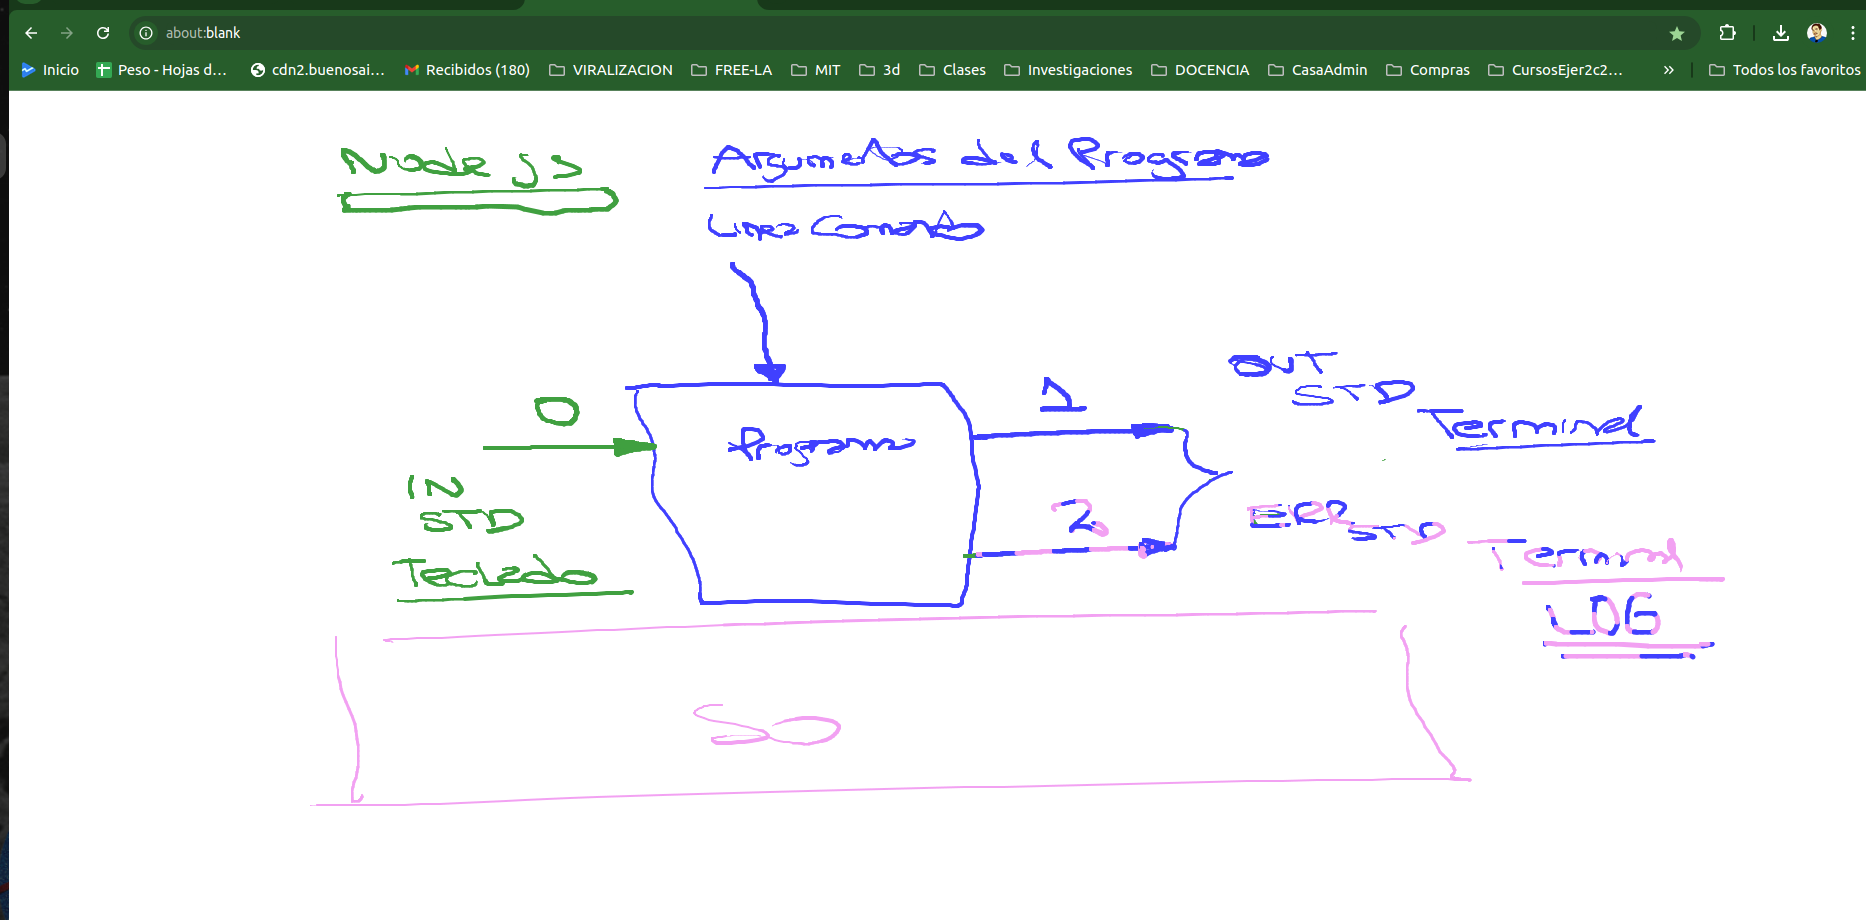 about:blank
Inicio
Peso - Hojas d...
cdn2.buenosai...
Recibidos (180)
VIRALIZACION
FREE-LA
MIT
3d
Clases
Investigaciones
DOCENCIA
CasaAdmin
Compras
CursosEjer2c2...
»
Todos los favoritos
Node js
Argumentos del Programa
Linea Comando
0
IN
STD
Teclado
Programa
1
OUT
STD
Terminal
2
ERR
STD
Terminal
LOG
SO